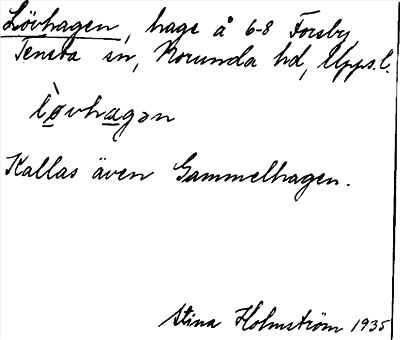 Lövhagen, hage å 6-8 Forsby
Tensta sn, Norunda hd, Upps. l.
lòvhagən
Kallas även Gammelhagen.
Stina Holmström 1935